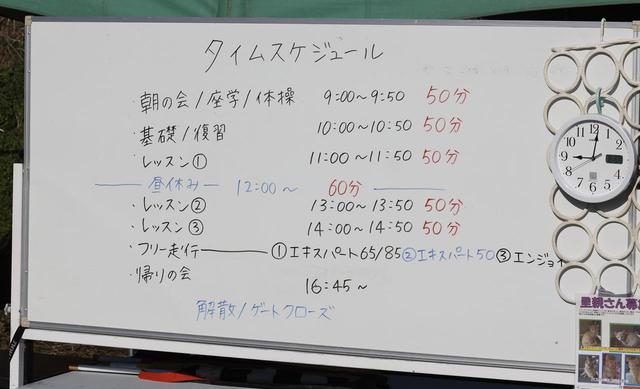 タイムスケジュール
・朝の会/座学/体操 9:00〜9:50 50分
・基礎/復習 10:00〜10:50 50分
・レッスン① 11:00〜11:50 50分
昼休み 12:00〜 60分
・レッスン② 13:00〜13:50 50分
・レッスン③ 14:00〜14:50 50分
・フリー走行 ①エキスパート65/85②エキスパート50③エンジョイ
・帰りの会 16:45〜
解散/ゲートクローズ
里親さん募